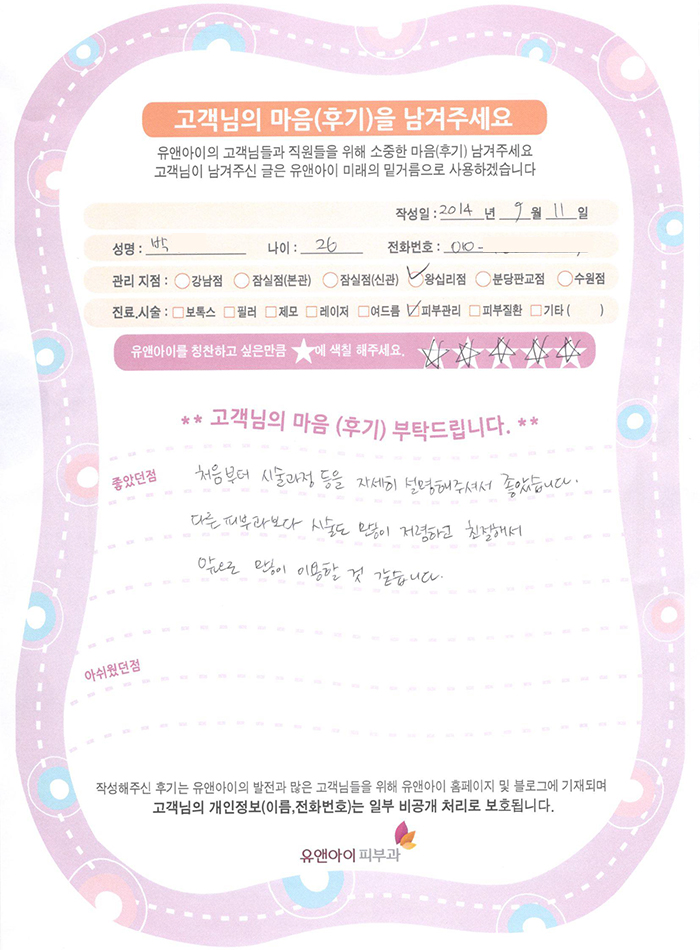 고객님의 마음(후기)을 남겨주세요
유앤아이의 고객님들과 직원들을 위해 소중한 마음(후기) 남겨주세요
고객님이 남겨주신 글은 유앤아이 미래의 밑거름으로 사용하겠습니다
작성일 : 2014 년 9 월 11 일
성명 : 박 나이 : 26 전화번호 : 010 -
관리 지점 : 강남점 잠실점(본관) 잠실점(신관) 왕십리점 분당판교점 수원점
진료,시술 : 보톡스 필러 제모 레이저 여드름 피부관리 피부질환 기타 ( )
유앤아이를 칭찬하고 싶은만큼 ★에 색칠 해주세요.
** 고객님의 마음 (후기) 부탁드립니다. **
좋았던점 처음부터 시술과정 등을 자세히 설명해주셔서 좋았습니다.
다른 피부과보다 시술도 많이 저렴하고 친절해서
앞으로 많이 이용할 것 같습니다.
아쉬웠던점
작성해주신 후기는 유앤아이의 발전과 많은 고객님들을 위해 유앤아이 홈페이지 및 블로그에 기재되며
고객님의 개인정보(이름,전화번호)는 일부 비공개 처리로 보호됩니다.
유앤아이 피부과